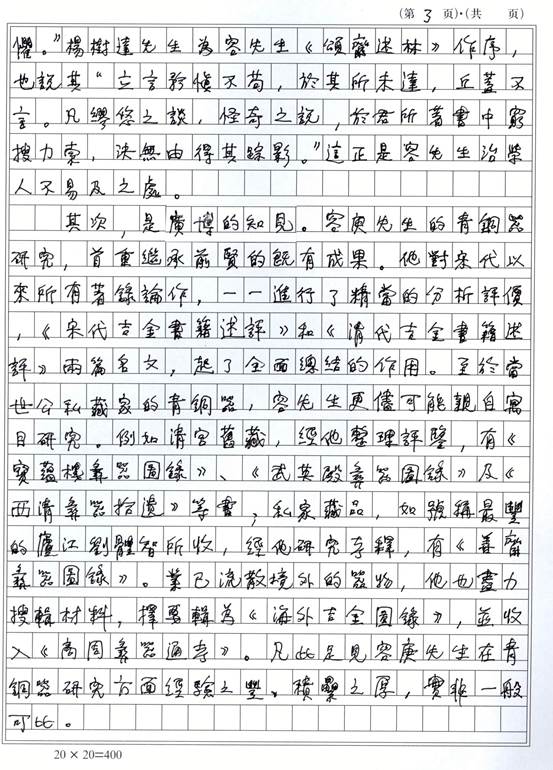 (第 3 页)·(共 页)
懼。”楊樹達先生為容先生《頌齋述林》作序，
也說其“立言矜慎不苟，於其所未達，丘蓋不
言。凡繆悠之談，怪奇之說，於君所著書中窮
搜力索，決無由得其踪影。”這正是容先生治學
人不易及之處。
其次，是廣博的知見。容庚先生的青銅器
研究，首重繼承前賢的既有成果。他對宋代以
來所有著錄論作，一一進行了精當的分析評價
，《宋代吉金書籍述評》和《清代吉金書籍述
評》兩篇名文，起了全面總結的作用。至於當
世公私藏家的青銅器，容先生更儘可能親自寓
目研究。例如清宮舊藏，經他整理評鑒，有《
寶蘊樓彝器圖錄》、《武英殿彝器圖錄》及《
西清彝器拾遺》等書；私家藏品，如號稱最豐
的廬江劉體智所收，經他研究考釋，有《善齋
彝器圖錄》。業已流散境外的器物，他也盡力
搜輯材料，擇要輯為《海外吉金圖錄》，並收
入《商周彝器通考》。凡此足見容庚先生在青
銅器研究方面經驗之豐、積纍之厚，實非一般
可比。
20 × 20=400